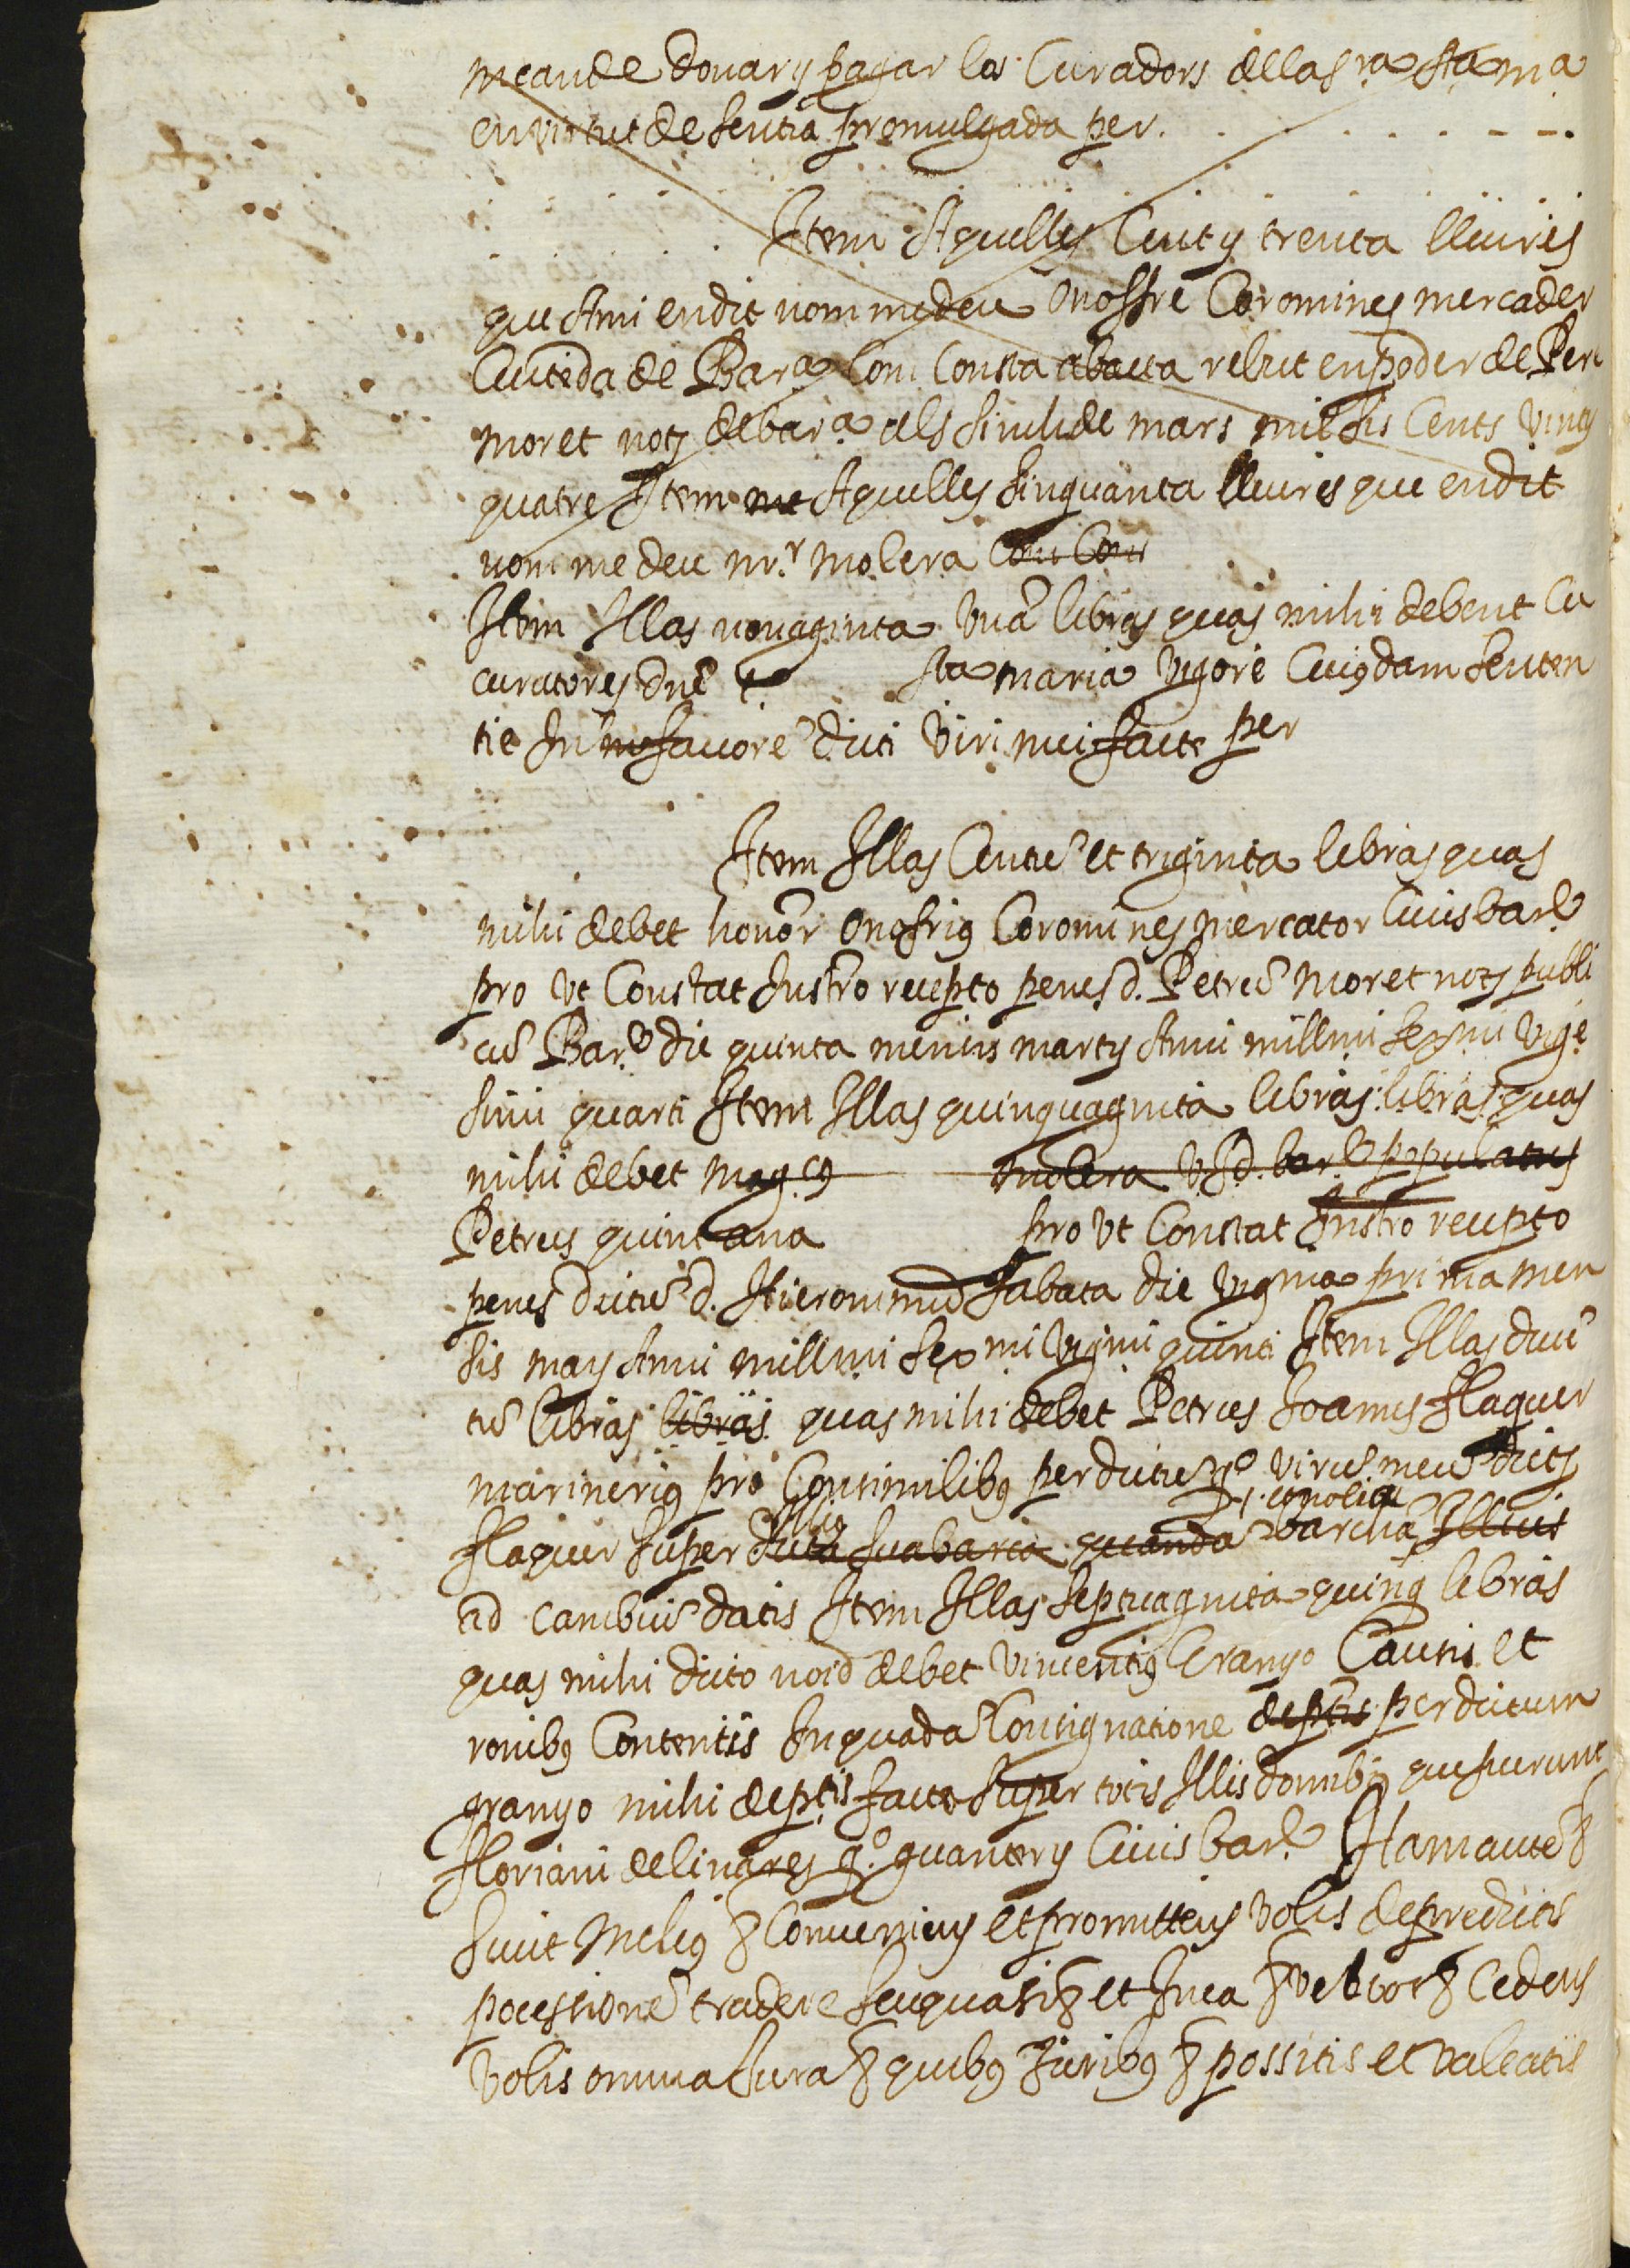 me aude donar y pagar los Curadors de la sra Sta ma
en virtut de sentia promulgada per . . . . . . . . .
Item Aquelles Cent y trenta lliures
que Ami en dit nom me deu Onoffre Coromines mercader
Ciuteda de Bara Com Consta ab acta rebut en poder de Pere
moret noty de bara als sinch de mars mil sis Cents vint y
quatre Item me Aquelles sinquanta lliures que en dit
nom me deu mr molera Com Com
Item Illas nonaginta una libras quas mihi debent Cu
curatores dne sta maria vigore Cuiusdam senten
tie In favore dicti viri mei facte per
Item Illas Centu et triginta libras quas
mihi debet honor Onofrius Coromines mercator Civis bar
pro ut Constat Instro recepto penes d. Petru moret noty publi
cu Bar die quinta mensis martij Anni millmi sexmi vige
simi quarti Item Illas quinquaginta libras libras quas
mihi debet magcus molera U J d. bar populatus
Petrus quintana pro ut Constat Instro recepto
penes dictu d. Hieronimu Sabata die vigma prima men
sis maij Anni millmi sexmi vigmi quinti Item Illas ducē
tu libras libras quas mihi debet Petrus Joannes flaquer
marinerius pro Consimilibus per dictu qo viru meu dicty
flaquer super dicta sua barca quanda barcha Illius
ad cambiu datis Item Illas septuaginta quinq libras
quas mihi dicto noīe debet vincentius Granyo Causis et
ronibus Contentis In quada Consignatione de ptis per dictum
granyo mihi de ptis facta super totis Illis domibus que fuerunt
floriani de linares qo. guantery Civis bar Ham aute &
sicut melius & Conveniens et promittens vobis de predictis
pocessione tradere seu quasi & et In ea & vel vos & Cedens
vobis omnia Jura & quibus Juribus & possitis et valeatis